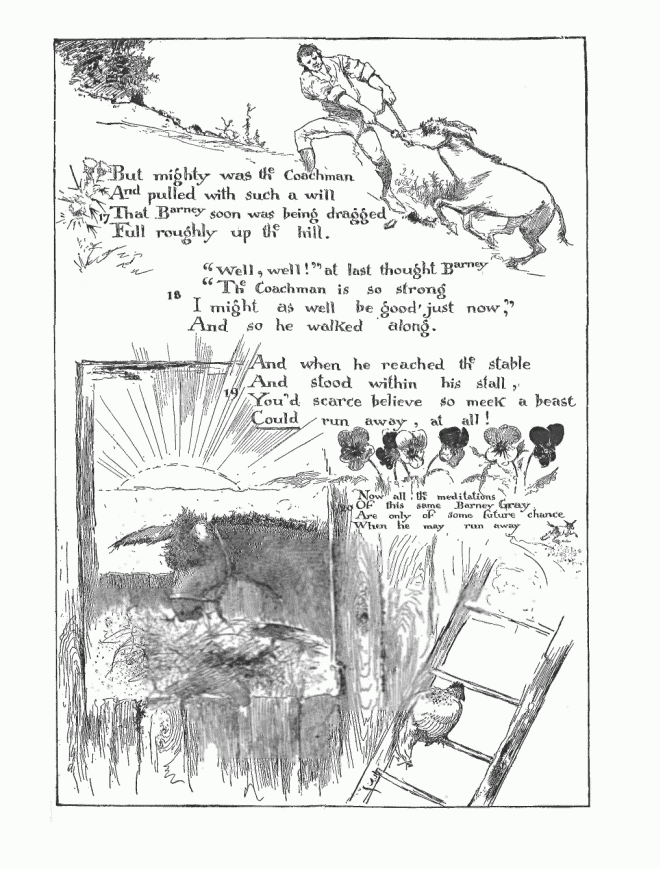 But mighty was the Coachman
And pulled with such a will
17 That Barney soon was being dragged
Full roughly up the hill.
"Well, well!" at last thought Barney
"The Coachman is so strong
18 I might as well be good just now,"
And so he walked along.
And when he reached the stable
And stood within his stall,
19 You'd scarce believe so meek a beast
Could run away, at all!
Now all the meditations
20 Of this same Barney Gray,
Are only of some future chance
When he may run away